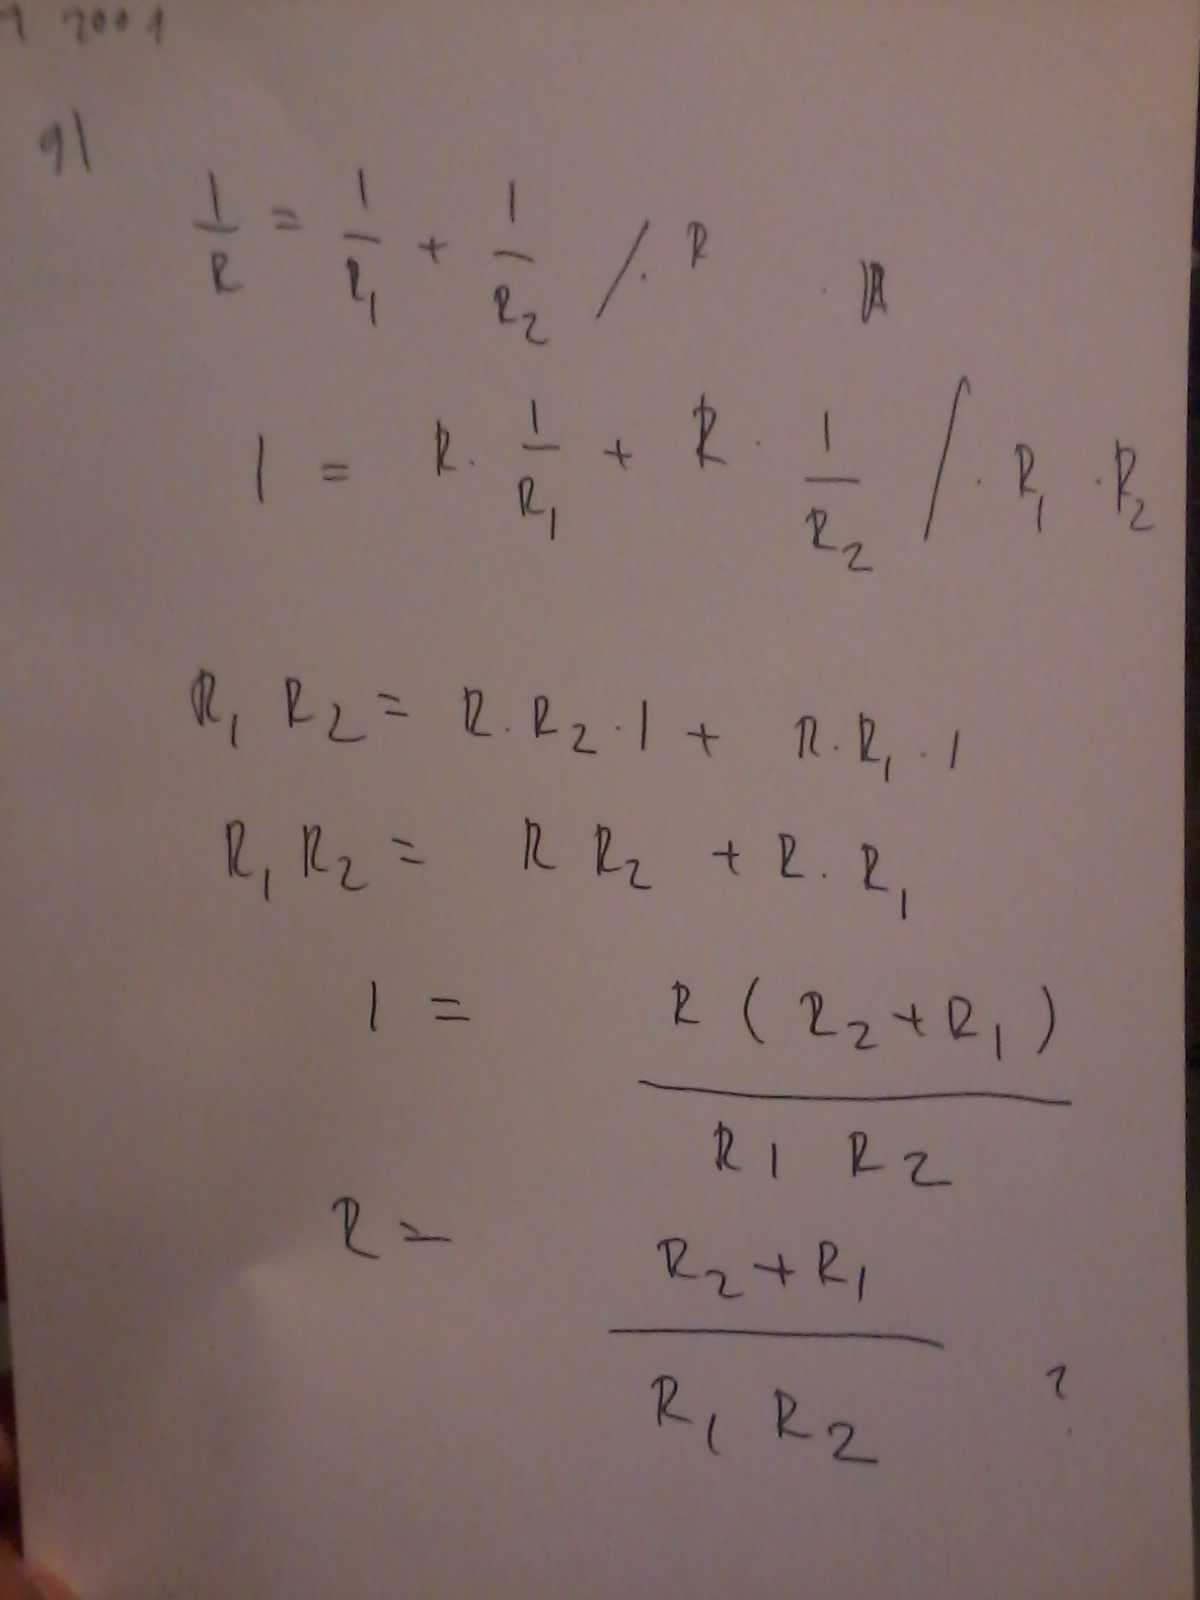 2001
9)
1/R = 1/R1 + 1/R2 / · R
1 = R · 1/R1 + R · 1/R2 / · R1 · R2
R1 R2 = R · R2 · 1 + R · R1 · 1
R1 R2 = R R2 + R · R1
1 = R ( R2 + R1 ) / R1 R2
R = R2 + R1 / R1 R2 ?